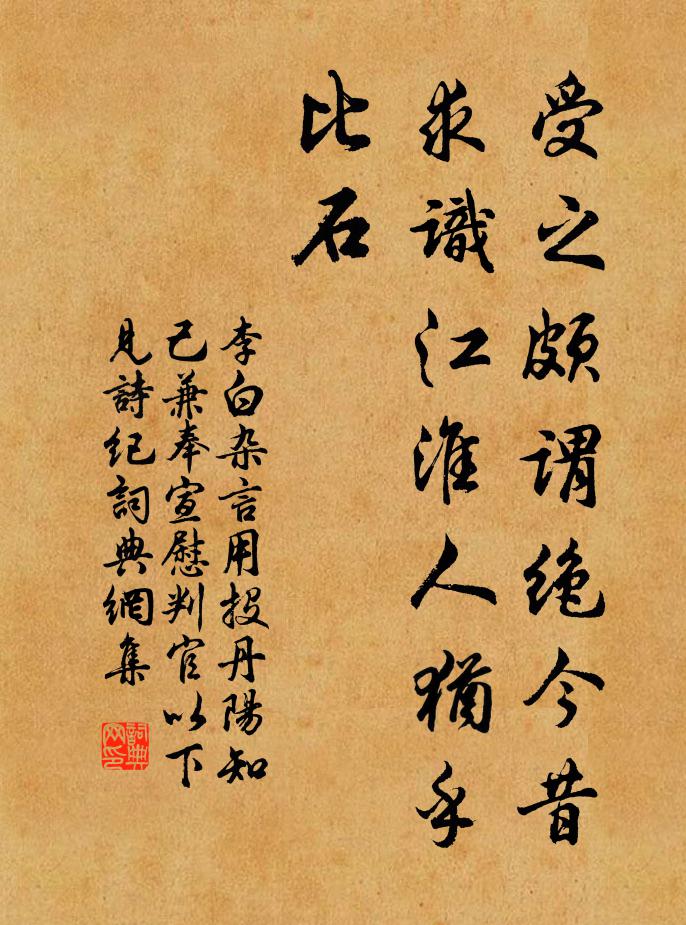 受之頗謂絶今昔
求識江淮人猶乎
比石
李白杂言用投丹陽知
己兼奉宣慰判官以下
見詩纪詞典網集
詞典
网印